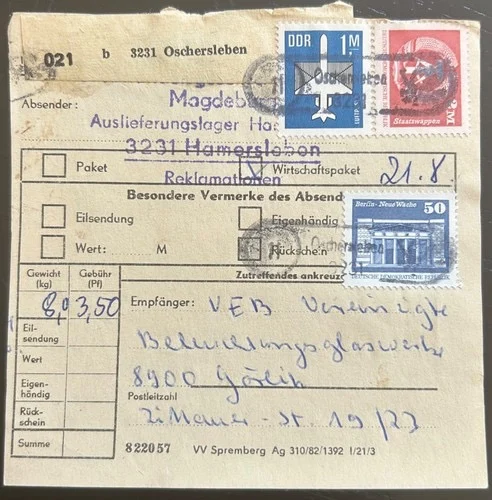 021 b 3231 Oschersleben
DDR 1M
LUFTPOST
2M
Staatswappen
Oschersleben
3231
Absender:
Magdeburg
Auslieferungslager
3231 Hamersleben
Reklamationen
Paket
Wirtschaftspaket
21.8.
Besondere Vermerke des Absend
Eilsendung
Eigenhändig
Wert: M
Rückschein
Zutreffendes ankreuz
Berlin - Neue Wache 50
DEUTSCHE DEMOKRATISCHE REPUBLIK
Oschersleben
Gewicht (kg)
Gebühr (Pf)
8,0
3,50
Eil-sendung
Wert
Eigen-händig
Rück-schein
Summe
Empfänger: VEB Vereinigte
Beleuchtungsglaswerke
8900 Görlitz
Postleitzahl
Zittauer-St. 19/23
822057 VV Spremberg Ag 310/82/1392 I/21/3